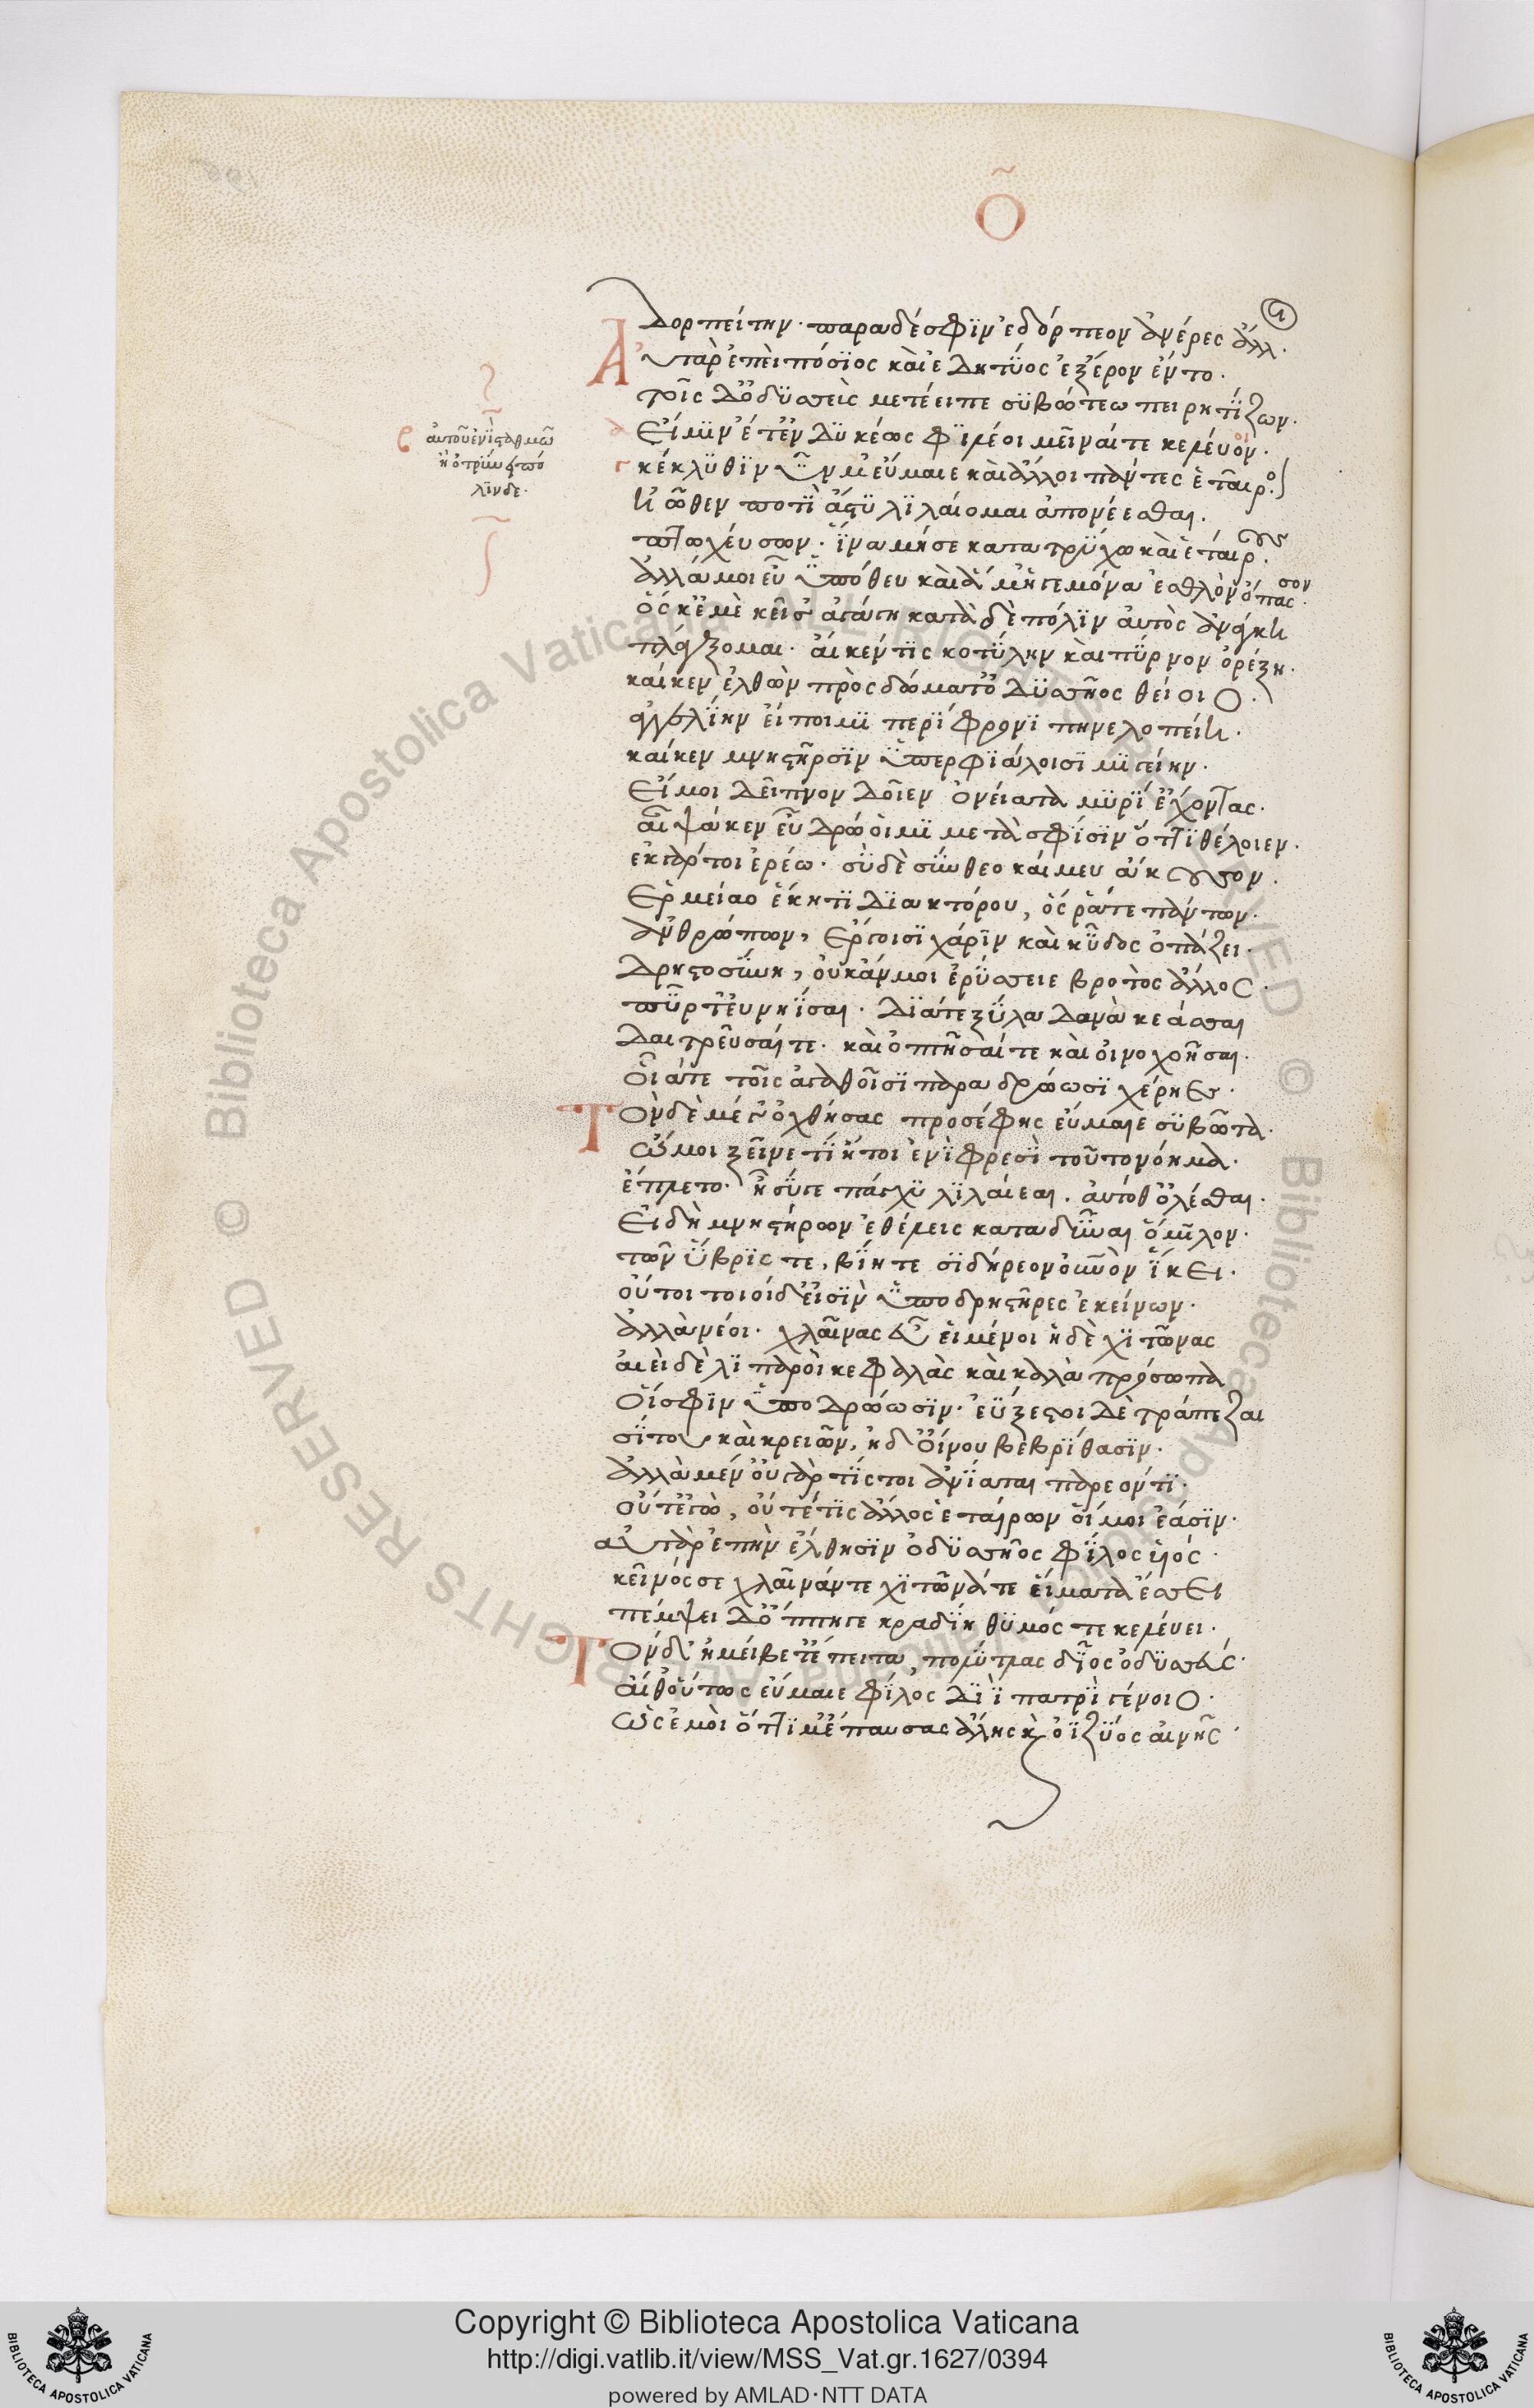 Ὀ
Δορπείτην· παρα δέ σφϊν ἐδόρπεον ἀνέρες ἄλλοι·
Αὐτὰρ ἐπεὶ πόσϊος καὶ ἐδητΰος ἐξ ἔρον ἕντο·
τοῖς δ' ὀδϋσσεὺς μετέειπε σϋβώτεω πειρητΐζων·
Εἴ μϊν ἔτ' ἐνδϋκέως φϊλέοι μεῖναί τε κελεύοι·
αὐτοῦ ἐνῒ σταθμῶ
ἢ ὀτρύνειε πό
λϊνδε·
κέκλϋθϊ νῦν μ' εὔμαιε καὶ ἄλλοι πάντες ἑταῖροι·
ἠῶθεν ποτῒ ἄστϋ λϊλαίομαι ἀπονέεσθαι·
πτωχεύσων· ἵνα μή σε κατατρΰχω καὶ ἑταίρους·
ἀλλά μοι εὖ ὑπόθευ καὶ ἅμ' ἡγεμόνα ἐσθλὸν ὄπασσον·
ὅς κέ μὲ κεῖσ' ἀγάγη κατὰ δὲ πόλϊν αὐτὸς ἀνάγκη
πλάγξομαι· αἴ κέν τϊς κοτΰλην καὶ πΰρνον ὀρέξη·
καί κεν ἐλθὼν πρὸς δώματ' ὀδϋσσῆος θείοιο·
ἀγγελΐην εἴποιμϊ περΐφρονϊ πηνελοπείη·
καί κεν μνηστῆρσϊν ὑπερφϊάλοισϊ μϊγείην·
Εἴ μοι δεῖπνον δοῖεν ὀνείατα μϋρΐ' ἔχοντας·
αἶψά κεν εὖ δρώοιμϊ μετὰ σφΐσϊν ὅττϊ θέλοιεν·
ἐκ γάρ τοι ἐρέω· σὺ δὲ σύνθεο καί μευ ἄκουσον·
Ἑρμείαο ἕκητϊ δϊακτόρου, ὅς ῥά τε πάντων·
ἀνθρώπων, ἔργοισϊ χάρϊν καὶ κῦδος ὀπάζει·
Δρηστοσύνη, οὐκ ἄν μοι ἐρΰσσειε βροτὸς ἄλλος·
πῦρ τ' εὖ νηῆσαι· δϊά τε ξΰλα δανὰ κεάσσαι
Δαιτρεῦσαί τε· καὶ ὀπτῆσαί τε καὶ οἰνοχοῆσαι·
Οἷά τε τοῖς ἀγαθοῖσϊ παραδρώωσϊ χέρηες·
Τὸν δὲ μέγ' ὀχθήσας προσέφης εὔμαιε συβῶτα·
Ὤμοι ξεῖνε τΐη τοι ἐνῒ φρεσῒ τοῦτο νόημα·
ἔπλετο· ἦ σΰγε πάγχϋ λϊλαίεαι· αὐτόθ' ὀλέσθαι·
Εἰ δὴ μνηστήρων ἐθέλεις καταδῦναι ὅμϊλον·
τῶν ὕβρϊς τε, βΐη τε σϊδήρεον οὐρανὸν ἵκει·
οὔτοι τοιοίδ' εἰσῒν ὑποδρηστῆρες ἐκείνων·
ἀλλὰ νέοι· χλαίνας εὖ εἱμένοι ἠδὲ χϊτῶνας
αἰεὶ δὲ λϊπαροὶ κεφαλὰς καὶ καλὰ πρόσωπα
Οἵ σφϊν ὑποδρώωσϊν· ἐΰξεστοι δὲ τράπεζαι
σΐτου καὶ κρειῶν, ἠδ' οἴνου βεβρΐθασϊν·
ἀλλὰ μέν· οὐ γάρ τΐς τοι ἀνϊᾶται παρεόντϊ·
οὔτ' ἐγώ, οὔτέ τϊς ἄλλος ἑταίρων οἵ μοι ἔασϊν·
αὐτὰρ ἐπὴν ἔλθησϊν ὀδϋσσῆος φΐλος ϋἱός·
κεῖνός σε χλαῖνάν τε χϊτῶνά τε εἵματα ἕσσει
πέμψει δ' ὅππη γε κραδΐη θϋμός τε κελέυει·
Τὸν δ' ἠμείβετ' ἔπειτα πολΰτλας δῖος ὀδϋσσεύς·
αἴθ' οὕτως εὔμαιε φΐλος Δϊῒ πατρῒ γένοιο·
Ὡς ἐμοὶ ὅττϊ μ' ἔπαυσας ἄλης κὰι ὀϊζΰος αἰνῆς·
Copyright © Biblioteca Apostolica Vaticana
http://digi.vatlib.it/view/MSS_Vat.gr.1627/0394
powered by AMLAD·NTT DATA
BIBLIOTECA APOSTOLICA VATICANA
BIBLIOTECA APOSTOLICA VATICANA
Biblioteca Apostolica Vaticana ALL RIGHTS RESERVED ©
Biblioteca Apostolica Vaticana ALL RIGHTS RESERVED ©